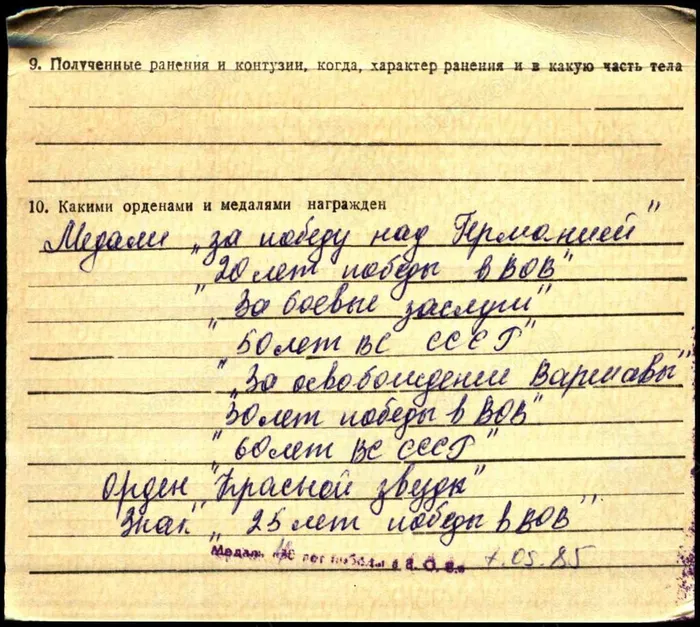 9. Полученные ранения и контузии, когда, характер ранения и в какую часть тела
10. Какими орденами и медалями награжден
Медали „за победу над Германией"
"20 лет победы в ВОВ"
"За боевые заслуги"
"50 лет ВС СССР"
„За освобождение Варшавы"
"30 лет победы в ВОВ"
"60 лет ВС СССР"
Орден „Красной звезды"
Знак „25 лет победы в ВОВ"
Медаль лет победы в В. О. В." 7.05.85